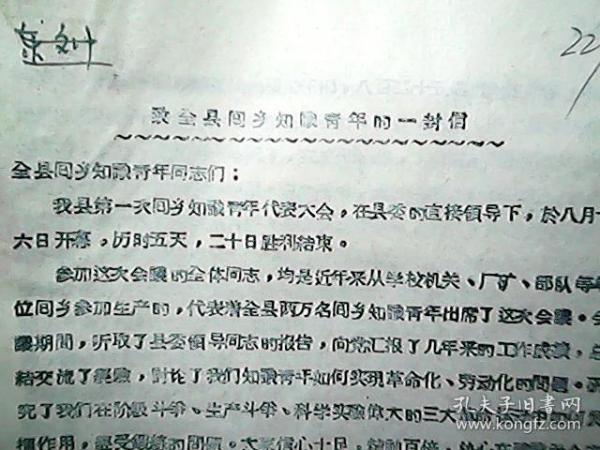 22
致全县回乡知识青年的一封信
全县回乡知识青年同志们：
我县第一次回乡知识青年代表大会，在县委的直接领导下，於八月十
六日开幕，历时五天，二十日胜利结束。
参加这次会议的全体同志，均是近年来从学校机关、厂矿、部队等单
位回乡参加生产的，代表着全县两万名回乡知识青年出席了这次会议。会
议期间，听取了县委领导同志的报告，向党汇报了几年来的工作成绩，总
结交流了经验，讨论了我们知识青年如何实现革命化、劳动化的问题。研
究了我们在阶级斗争、生产斗争、科学实验伟大的三大革命运动中如何发
挥作用，
的问题。大家信心十足，精神百倍，决心在
孔夫子旧书网
www.kongfz.com